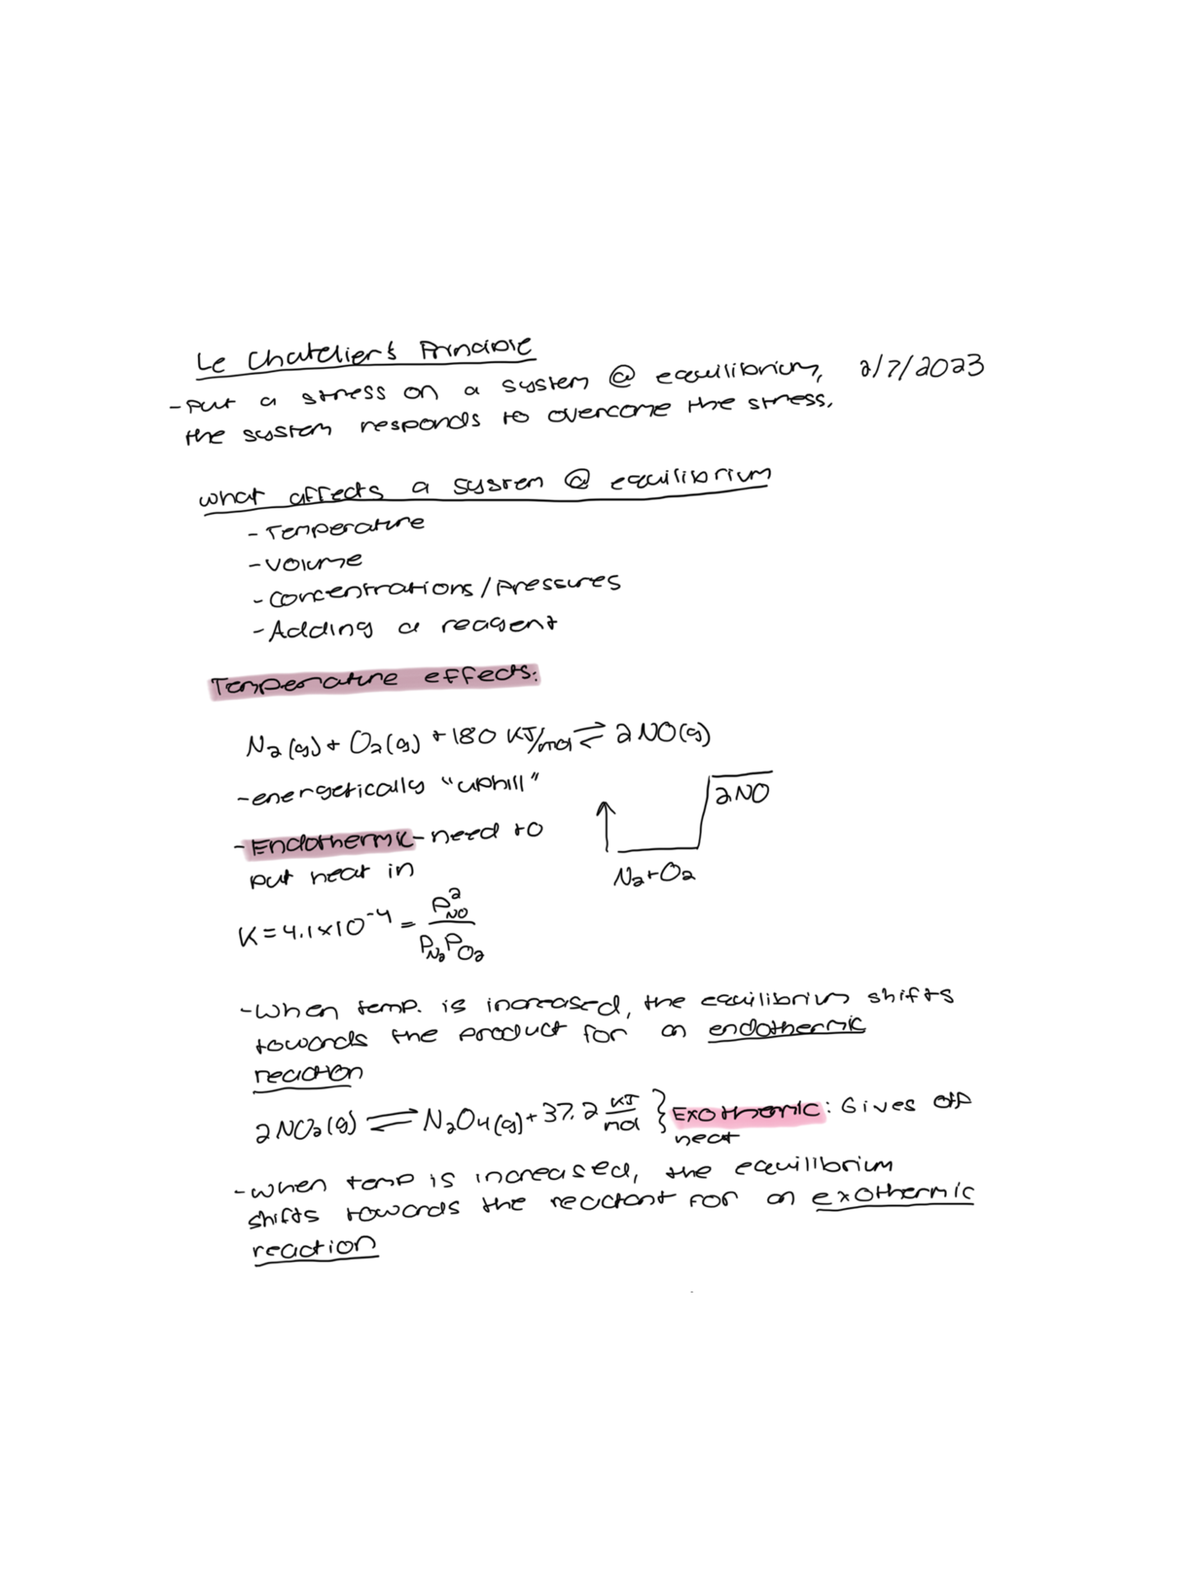 Le Chatelier's Principle
-put a stress on a system @ equilibrium, 2/7/2023
the system responds to overcome the stress.
what affects a system @ equilibrium
- Temperature
- Volume
- Concentrations/pressures
- Adding a reagent
Temperature effects:
N₂(g) + O₂(g) + 180 KJ/mol ⇌ 2NO(g)
-energetically "uphill"
2NO
- Endothermic - need to
put heat in
N₂+O₂
K = 4.1x10⁻⁴ = P²NO / PN₂ PO₂
-When temp. is increased, the equilibrium shifts
towards the product for an endothermic
reaction
2NO₂(g) ⇌ N₂O₄(g) + 37.2 KJ/mol } Exothermic: Gives off
heat
-when temp is increased, the equilibrium
shifts towards the reactant for an exothermic
reaction